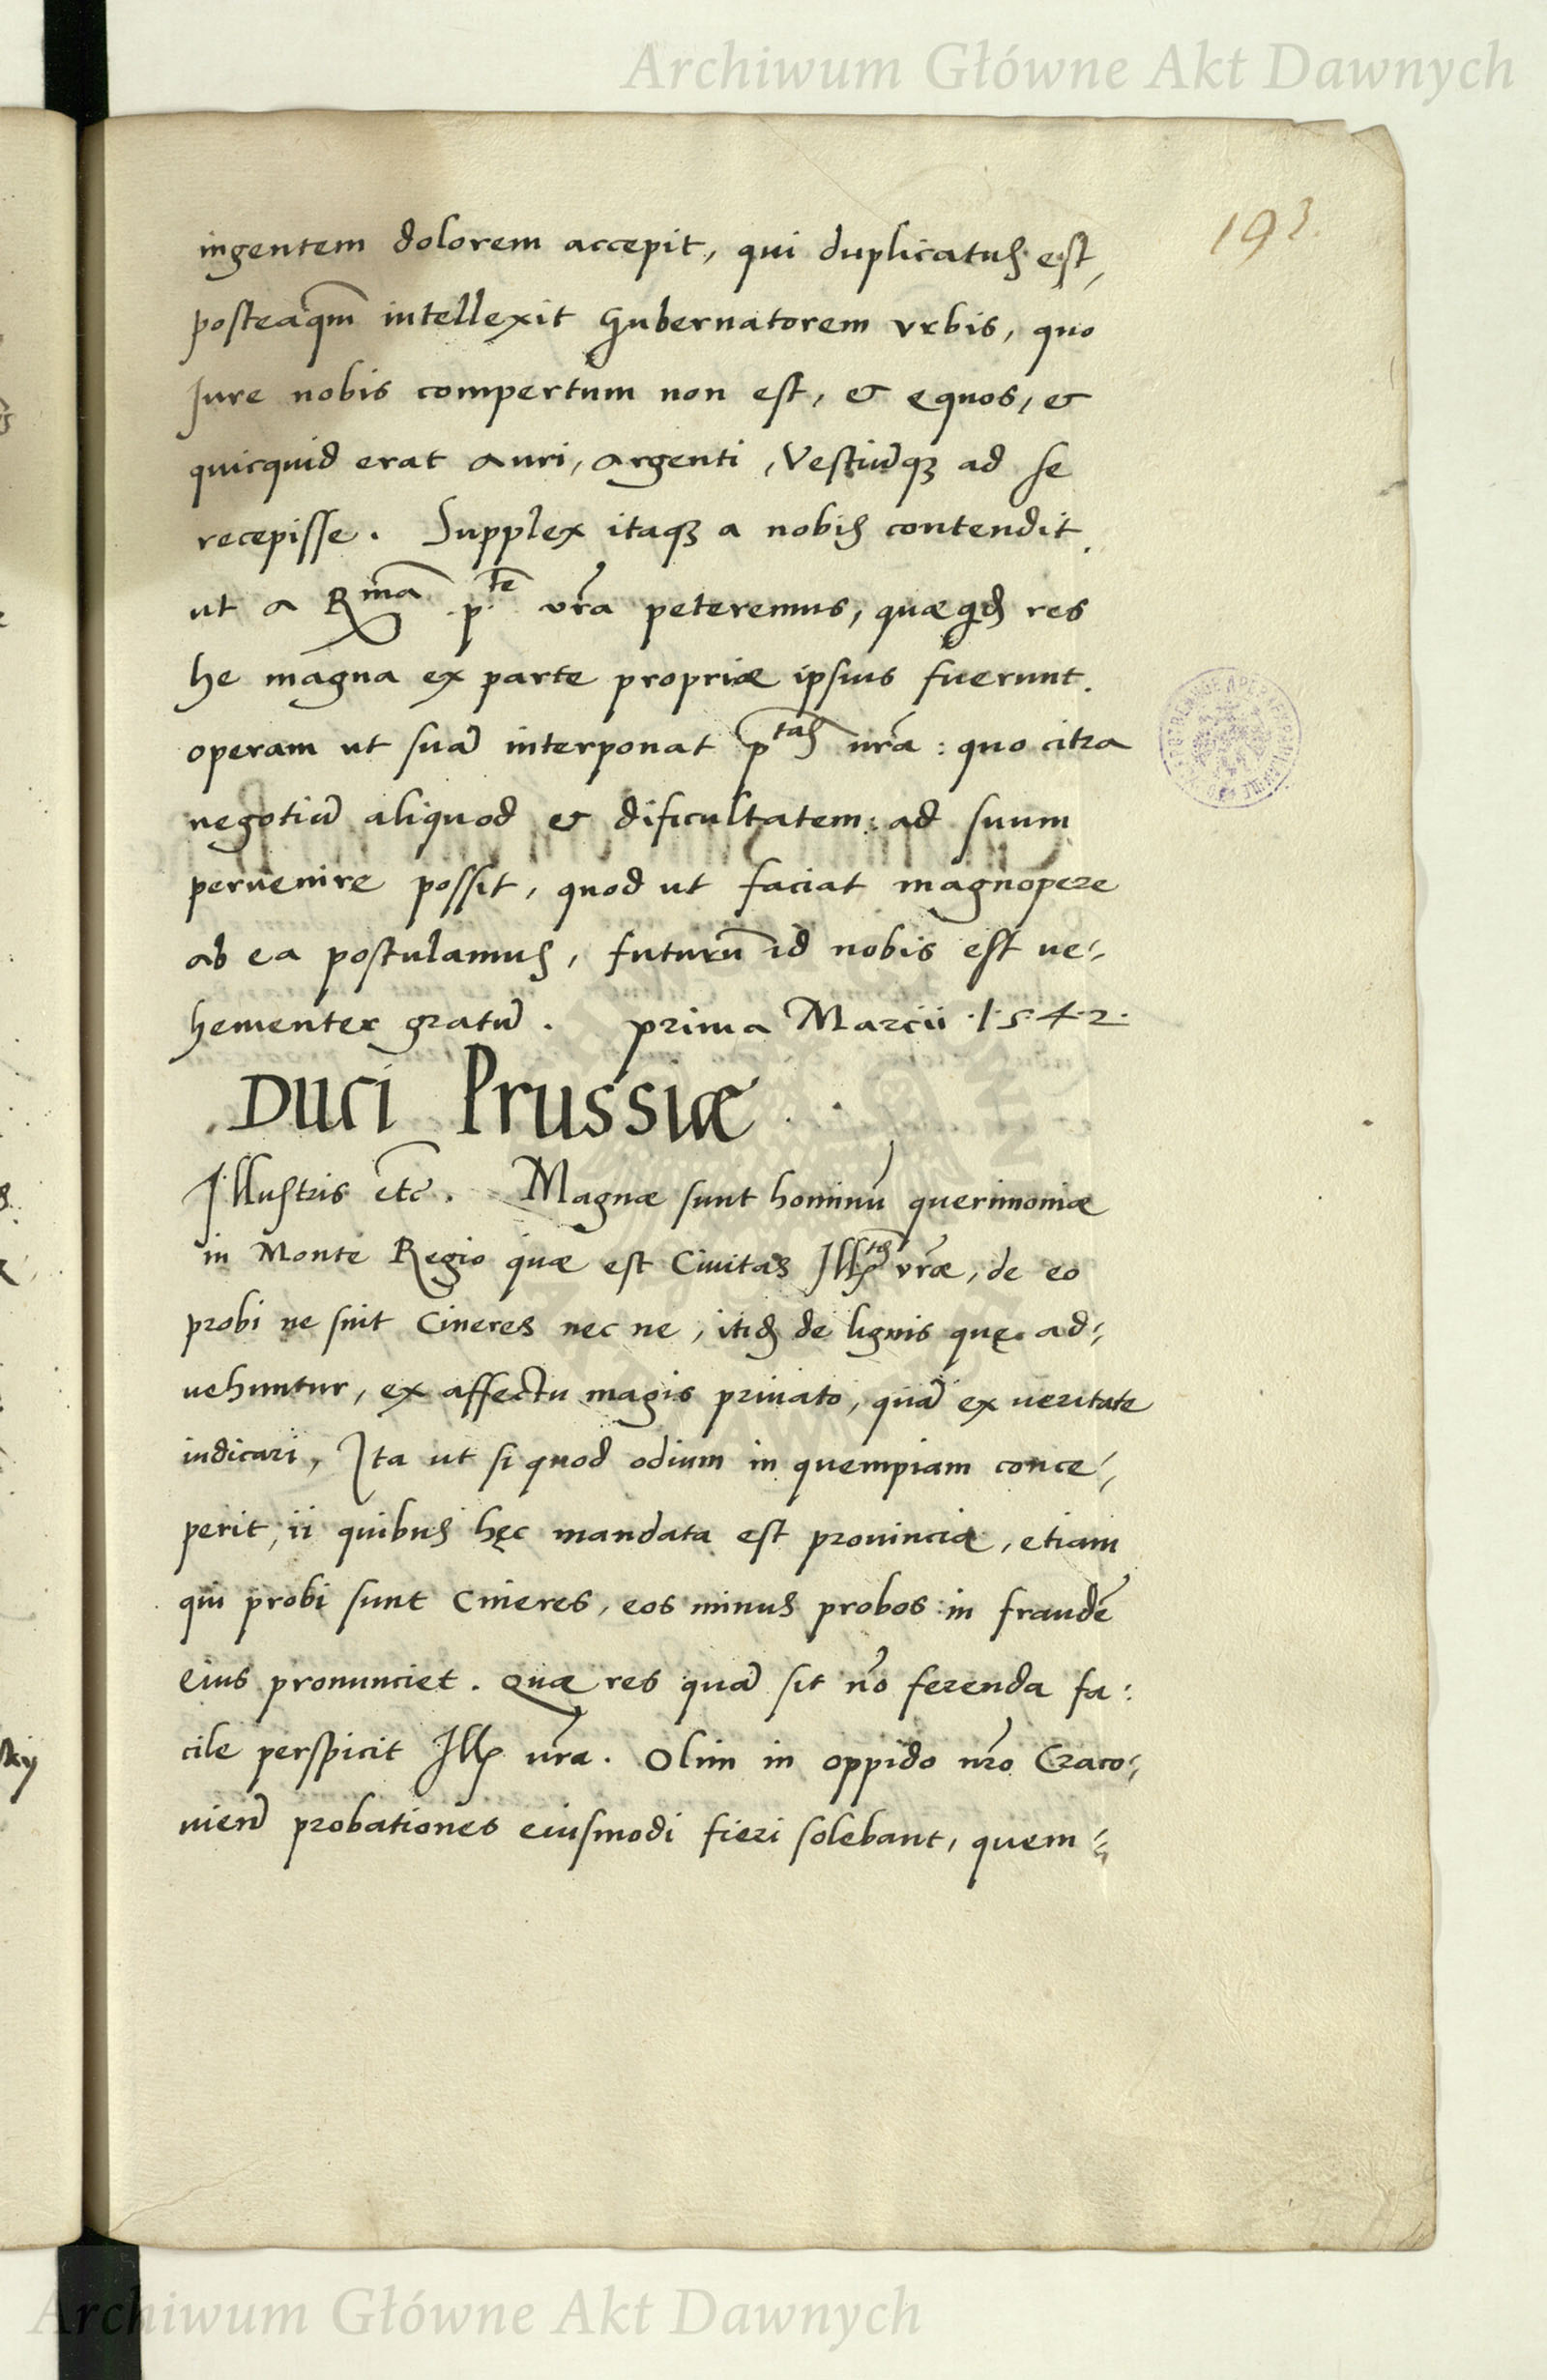 Archiwum Główne Akt Dawnych
193.
ingentem dolorem accepit, qui duplicatus est,
posteaq̃m intellexit Gubernatorem vrbis, quo
Iure nobis compertum non est, & equos, &
quicquid erat auri, argenti, Vestiũq3 ad se
recepisse. Supplex itaq3 a nobis contendit.
ut a Rma p.te vr̃a peteremus, res
he magna ex parte propriæ ipsius fuerunt.
operam ut suã interponat ptas ur̃a: quo citra
negotiũ aliquod & dificultatem: ad suum
peruenire possit, quod ut faciat magnopere
ab ea postulamus, futurũ id nobis est ue-,
hementer gratũ. prima Marcii .1542.
Duci Prussiæ
Illustris etc̃. Magnæ sunt hominũ querimoniæ
in Monte Regio quæ est Ciuitas Illtis vr̃æ, de eo
probi ne sint Cineres nec ne, de lignis quę ad-,
uehuntur, ex affectu magis priuato, quã ex ueritate
iudicari, Ita ut si quod odium in quempiam conce-,
perit, ii quibus hęc mandata est prouincia, etiam
qui probi sunt Cineres, eos minus probos in fraudẽ
eius pronunciet. Quæ res quã sit nõ ferenda fa:
cile perspicit Ill. ur̃a. Olim in oppido nr̃o Craco-,
uieñ probationes eiusmodi fieri solebant, quem-
Archiwum Główne Akt Dawnych